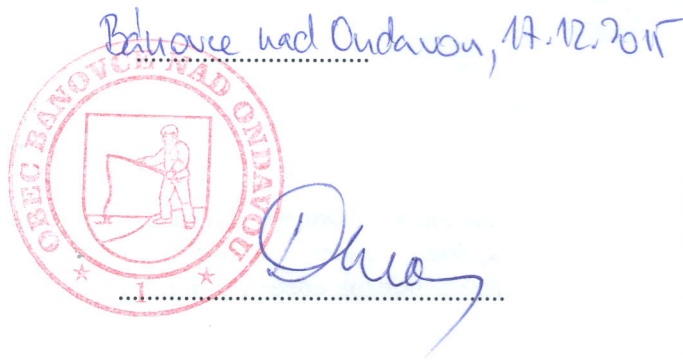 Bánovce nad Ondavou, 17.12.2015
OBEC BANOVCE NAD ONDAVOU
1